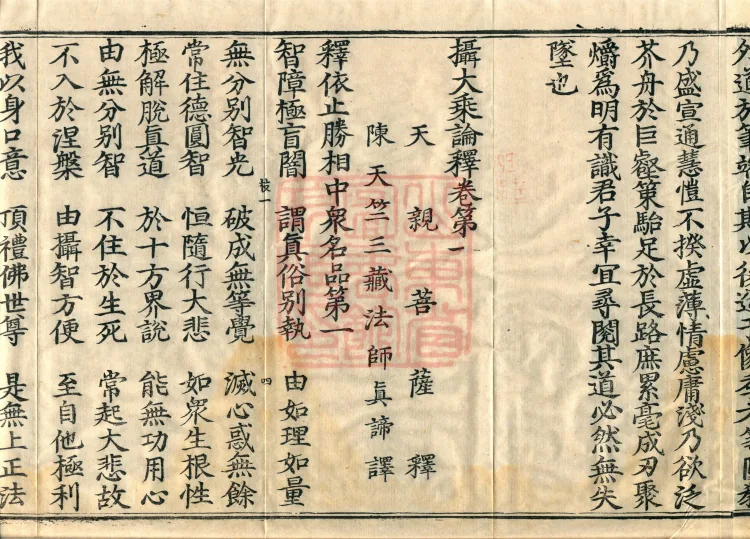 乃盛宣通慧愷不揆虛薄情慮庸淺乃欲泛
芥舟於巨壑策駘足於長路庶累毫成刃聚
爝爲明有識君子幸宜尋閱其道必然無失
墜也
攝大乘論釋卷第一
天親菩薩釋
陳天竺三藏法師眞諦譯
釋依止勝相中衆名品第一
智障極盲闇 謂眞俗別執 由如理如量
枝一 四
無分別智光 破成無等覺 滅心惑無餘
常住德圓智 恒隨行大悲 如衆生根性
極解脫眞道 於十方界說 能無功用心
由無分別智 不住於生死 常起大悲故
不入於涅槃 由攝智方便 至自他極利
我以身口意 頂禮佛世尊 是無上正法